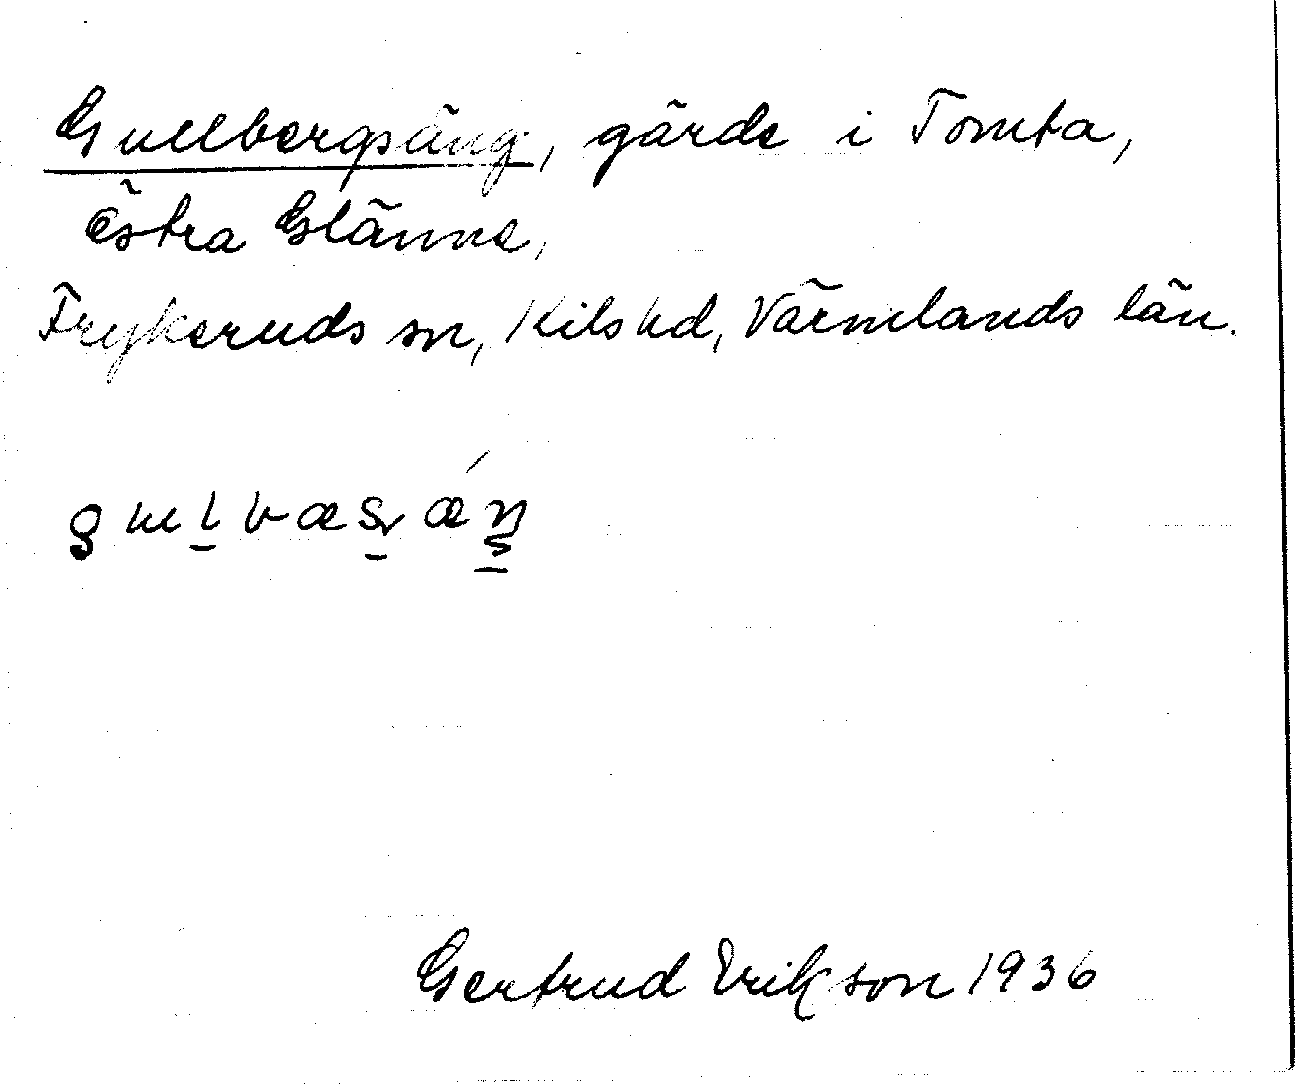 Gullbergsäng, gärde i Tomta,
Östra Glänne,
Frykeruds sn, Kils hd, Värmlands län.
Gertrud Erikson 1936